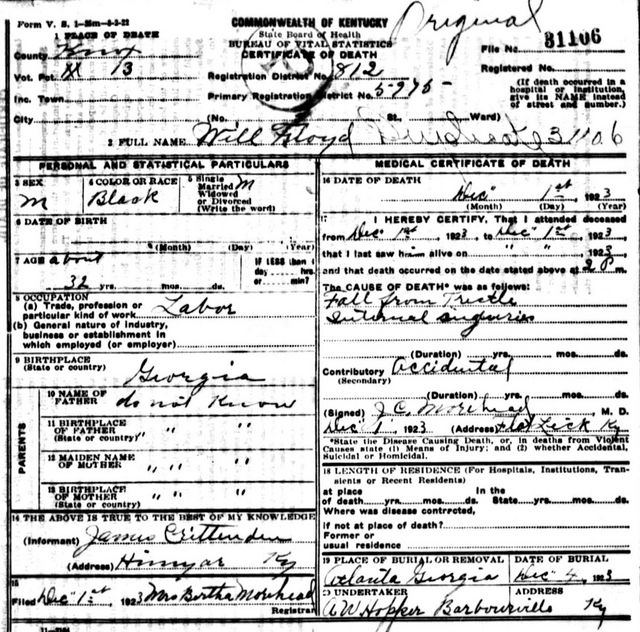 Form V. S. 1-35m-5-2-22
COMMONWEALTH OF KENTUCKY
State Board of Health
BUREAU OF VITAL STATISTICS
CERTIFICATE OF DEATH
Original
File No. 31106
Registered No.
(If death occurred in a hospital or institution, give its NAME instead of street and number.)
1 PLACE OF DEATH
County Knox
Vot. Pct. 13
Inc. Town
City
Registration District No. 812
Primary Registration District No. 5975
(No. St., Ward)
2 FULL NAME Will Floyd Duplicate 31106
PERSONAL AND STATISTICAL PARTICULARS
3 SEX
M
4 COLOR OR RACE
Black
5 Single
Married
Widowed
or Divorced
(Write the word)
M
6 DATE OF BIRTH
(Month) (Day) (Year)
7 AGE about
32 yrs. mos. ds.
IF LESS than 1
day hrs.
or min?
8 OCCUPATION
(a) Trade, profession or
particular kind of work Labor
(b) General nature of industry,
business or establishment in
which employed (or employer)
9 BIRTHPLACE
(State or country)
Georgia
PARENTS
10 NAME OF
FATHER do not Know
11 BIRTHPLACE
OF FATHER " "
(State or country)
12 MAIDEN NAME
OF MOTHER " " "
13 BIRTHPLACE
OF MOTHER " " "
(State or country)
14 THE ABOVE IS TRUE TO THE BEST OF MY KNOWLEDGE
(Informant) James Crittenden
(Address) Hinyar Ky
15
Filed Dec 1st, 1923 Mrs Bertha Morehead
Registrar
MEDICAL CERTIFICATE OF DEATH
16 DATE OF DEATH
Dec 1st 1923
(Month) (Day) (Year)
17 I HEREBY CERTIFY, That I attended deceased
from Dec 1st, 1923, to Dec 1st, 1923
that I last saw him alive on " " 1923
and that death occurred on the date stated above at m.
The CAUSE OF DEATH* was as follows:
Fall from Trestle
Internal enquiries
(Duration) yrs. mos. ds.
Contributory Accidental
(Secondary)
(Duration) yrs. mos. ds.
(Signed) J.C. Morehead, M. D.
Dec 1, 1923 (Address) Flat Lick Ky
*State the Disease Causing Death, or, in deaths from Violent
Causes state (1) Means of Injury; and (2) whether Accidental,
Suicidal or Homicidal.
18 LENGTH OF RESIDENCE (For Hospitals, Institutions, Transients or Recent Residents)
at place
of death yrs. mos. ds.
In the
State yrs. mos. ds.
Where was disease contrcted,
if not at place of death?
Former or
usual residence
19 PLACE OF BURIAL OR REMOVAL
Atlanta Georgia
DATE OF BURIAL
Dec 4, 1923
20 UNDERTAKER
A W Hopper
ADDRESS
Barbourville Ky